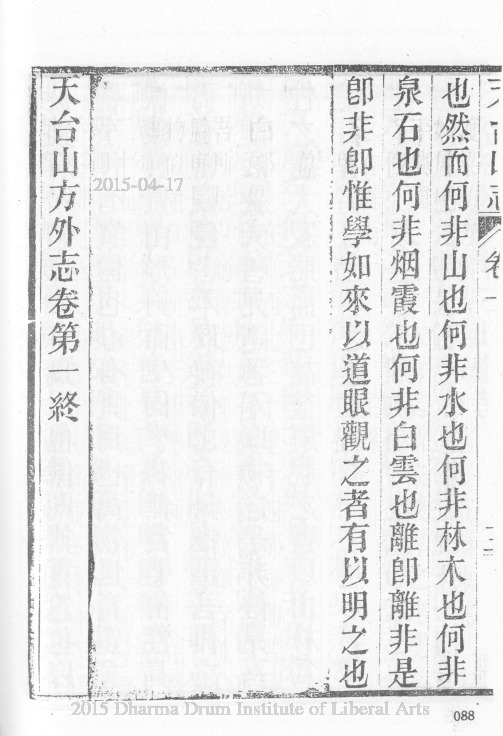 也然而何非山也何非水也何非林木也何非
泉石也何非烟霞也何非白雲也離卽離非是
卽非卽惟學如來以道眼觀之者有以明之也
天台山方外志卷第一終
2015-04-17
2015 Dharma Drum Institute of Liberal Arts
088